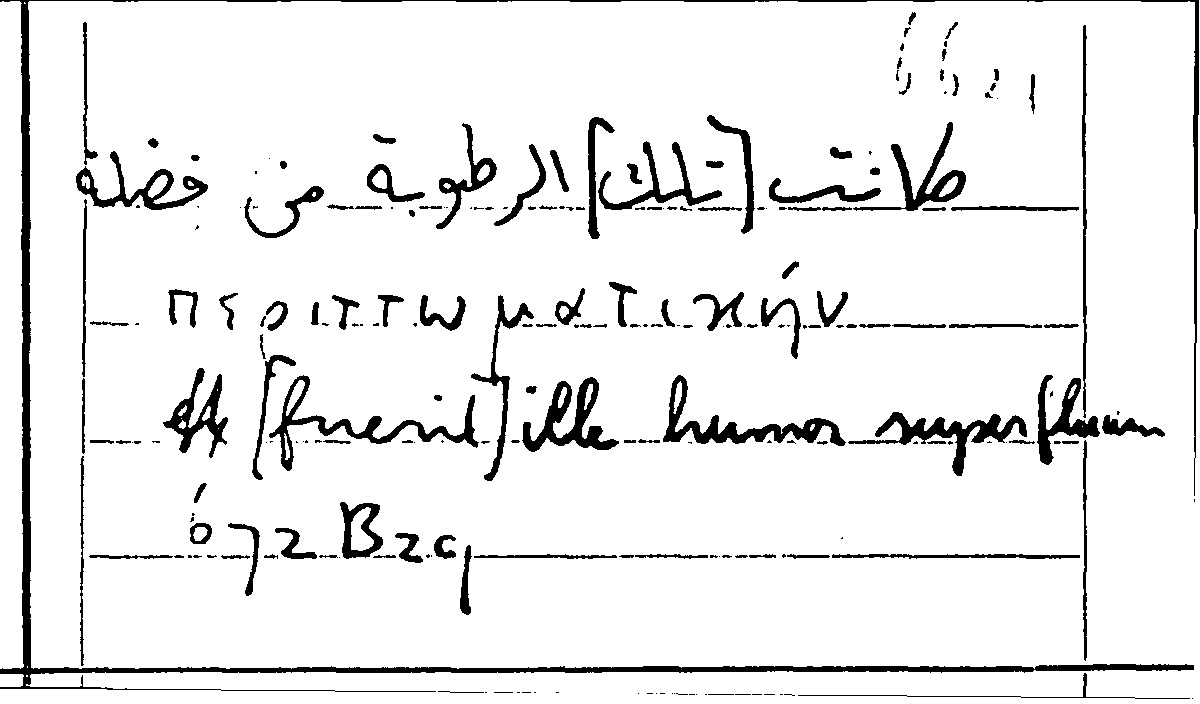 6621
كانت [تلك] الرطوبة من فضلة
περιττωματικήν
[fuerit] ille humor superfluum
672 B 29